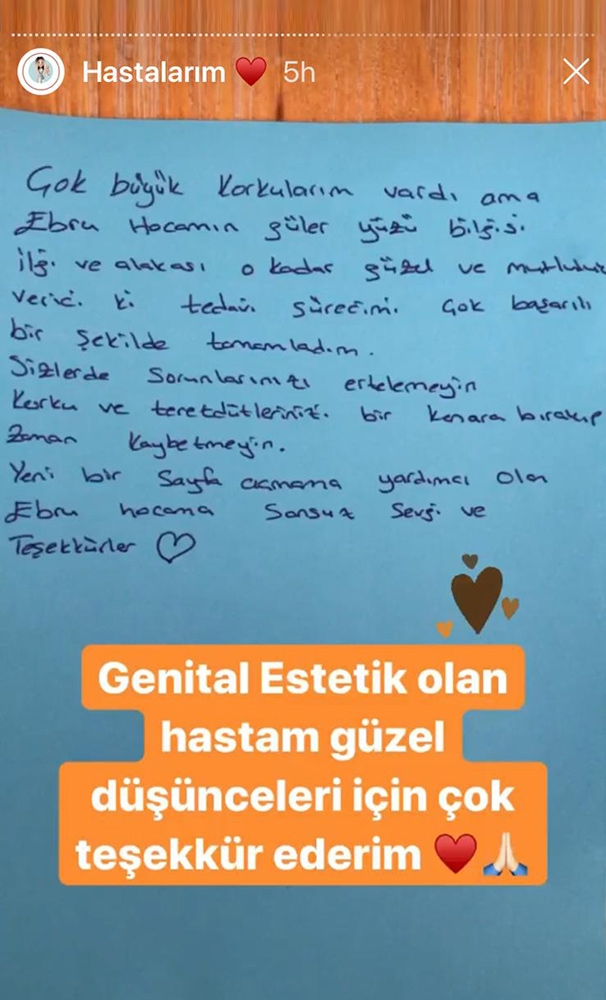 Hastalarım ♥️ 5h
Çok büyük korkularım vardı ama
Ebru Hocamın güler yüzü bilgisi
ilgi ve alakası o kadar güzel ve mutluluk
verici ki tedavi sürecimi çok başarılı
bir şekilde tamamladım.
Sizlerde Sorunlarınızı ertelemeyin
Korku ve teretdütlerinizi bir kenara bırakıp
Zaman kaybetmeyin.
Yeni bir Sayfa açmama yardımcı olan
Ebru hocama Sonsuz Sevgi ve
Teşekkürler ♡
Genital Estetik olan
hastam güzel
düşünceleri için çok
teşekkür ederim ♥️🙏🏻